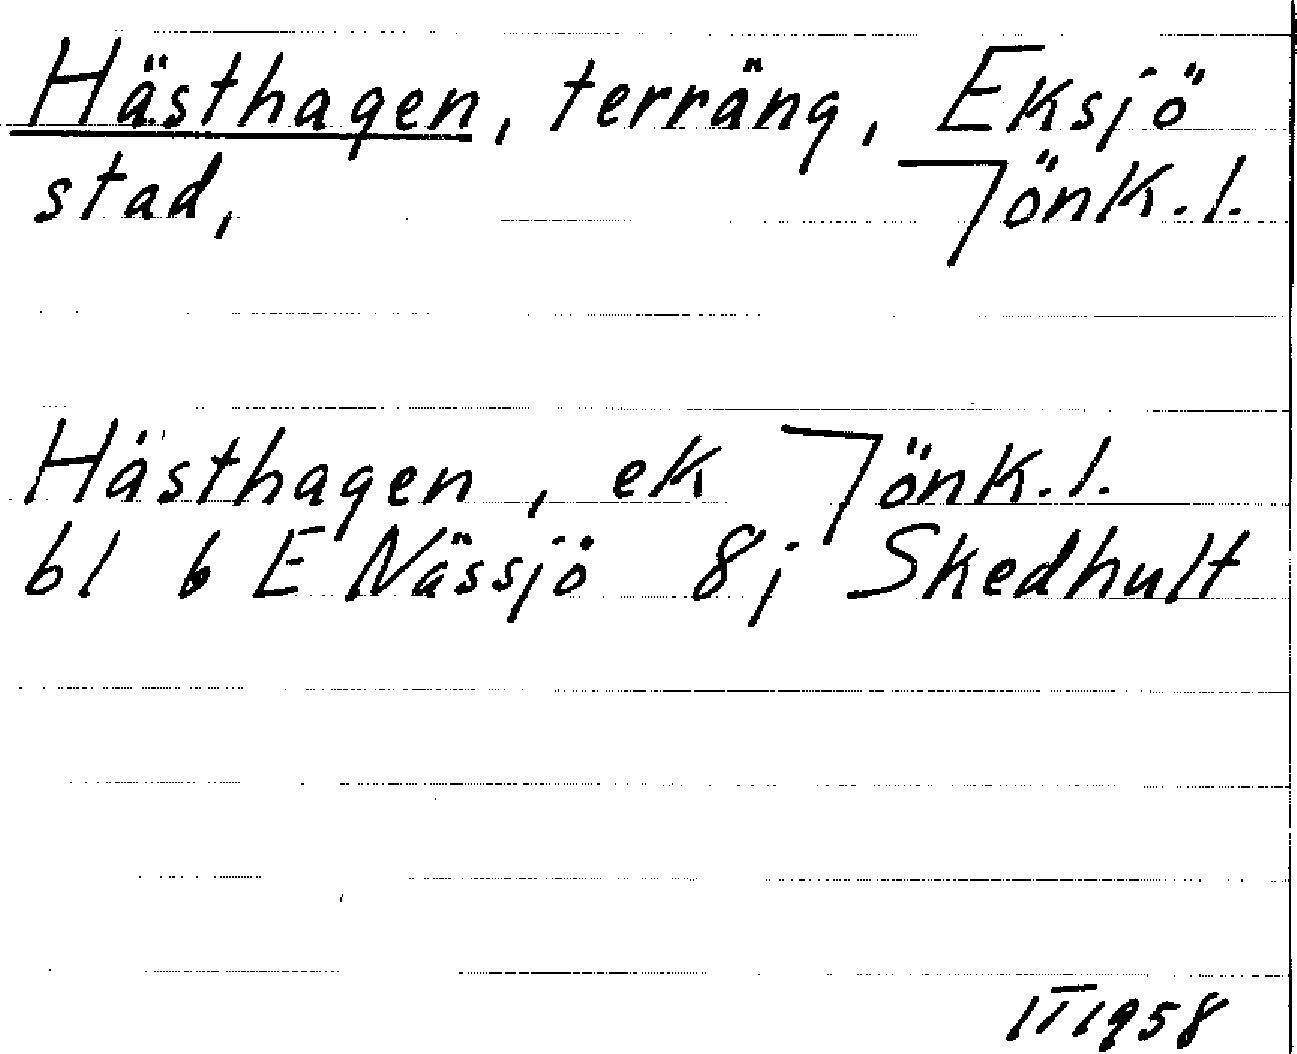 Hästhagen, terräng, Eksjö
stad, Jönk.l.
Hästhagen, ek Jönk.l.
bl 6 E Nässjö 8j Skedhult
1958